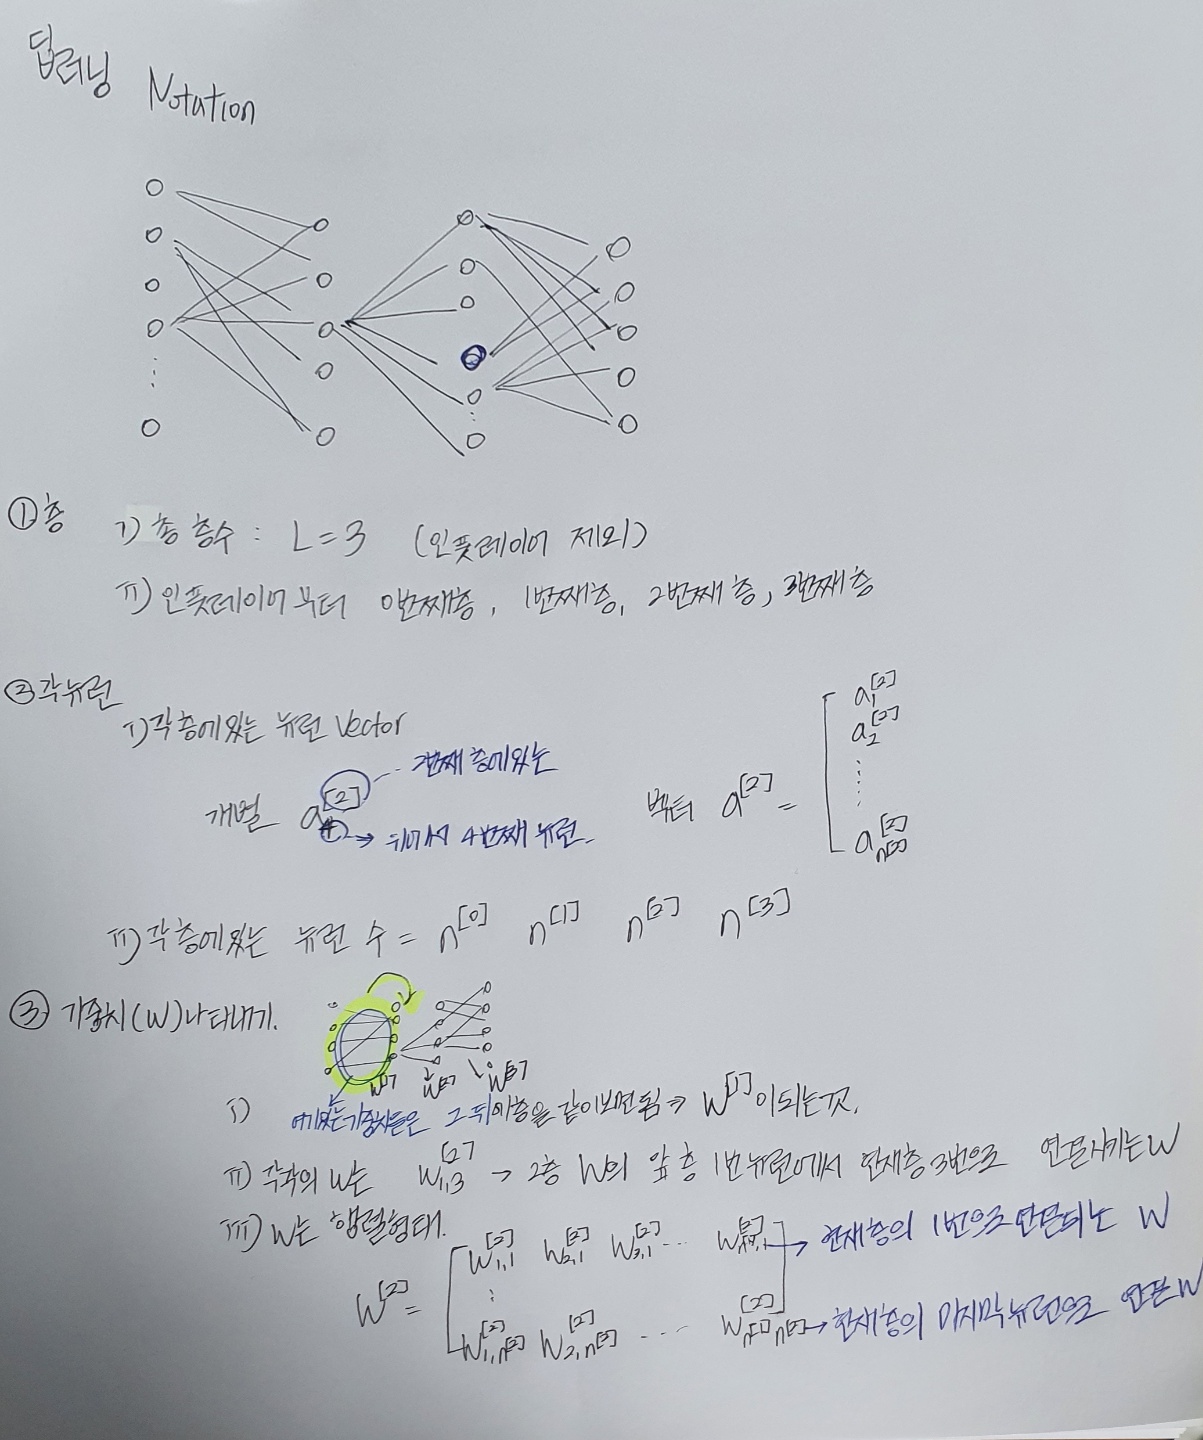 딥러닝 Notation
① 층
i) 총 층수 : L=3 (인풋레이어 제외)
ii) 인풋레이어 부터 0번째층, 1번째층, 2번째층, 3번째층
② 각뉴런
i) 각층에있는 뉴런 Vector
개별 a₄^[2]
2번째 층에있는
→ 위에서 4번째 뉴런.
벡터 a^[2] = [ a₁^[2] a₂^[2] ⋮ a_n[2]^[2]
ii) 각층에있는 뉴런 수 = n^[0] n^[1] n^[2] n^[3]
③ 가중치(W)나타내기.
W^[1] W^[2] W^[3]
i) 여기있는가중치들은 그 뒤의층을 같이보면됨 ⇒ W^[1]이되는것.
ii) 각각의 W는 W₁,₃^[2] → 2층 W의 앞층 1번뉴런에서 현재층3번으로 연결시키는W
iii) W는 행렬형태.
W^[2] = [ W₁,₁^[2] W₂,₁^[2] W₃,₁^[2] ⋯ W_n[1],₁^[2] → 현재층의 1번으로연결되는 W
⋮
W₁,n[2]^[2] W₂,n[2]^[2] ⋯ W_n[1]n[2]^[2] ] → 현재층의 마지막뉴런으로 연결W